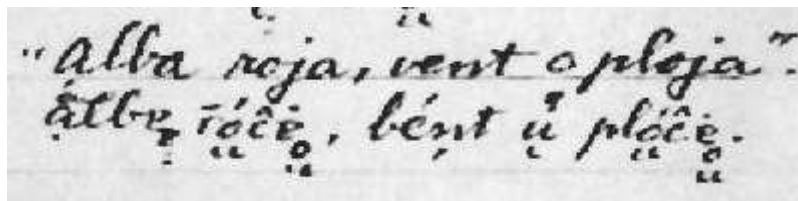 "alba roja, vent o ploja".
álbẹ r̄óĉė, bént u̇ plóĉė.